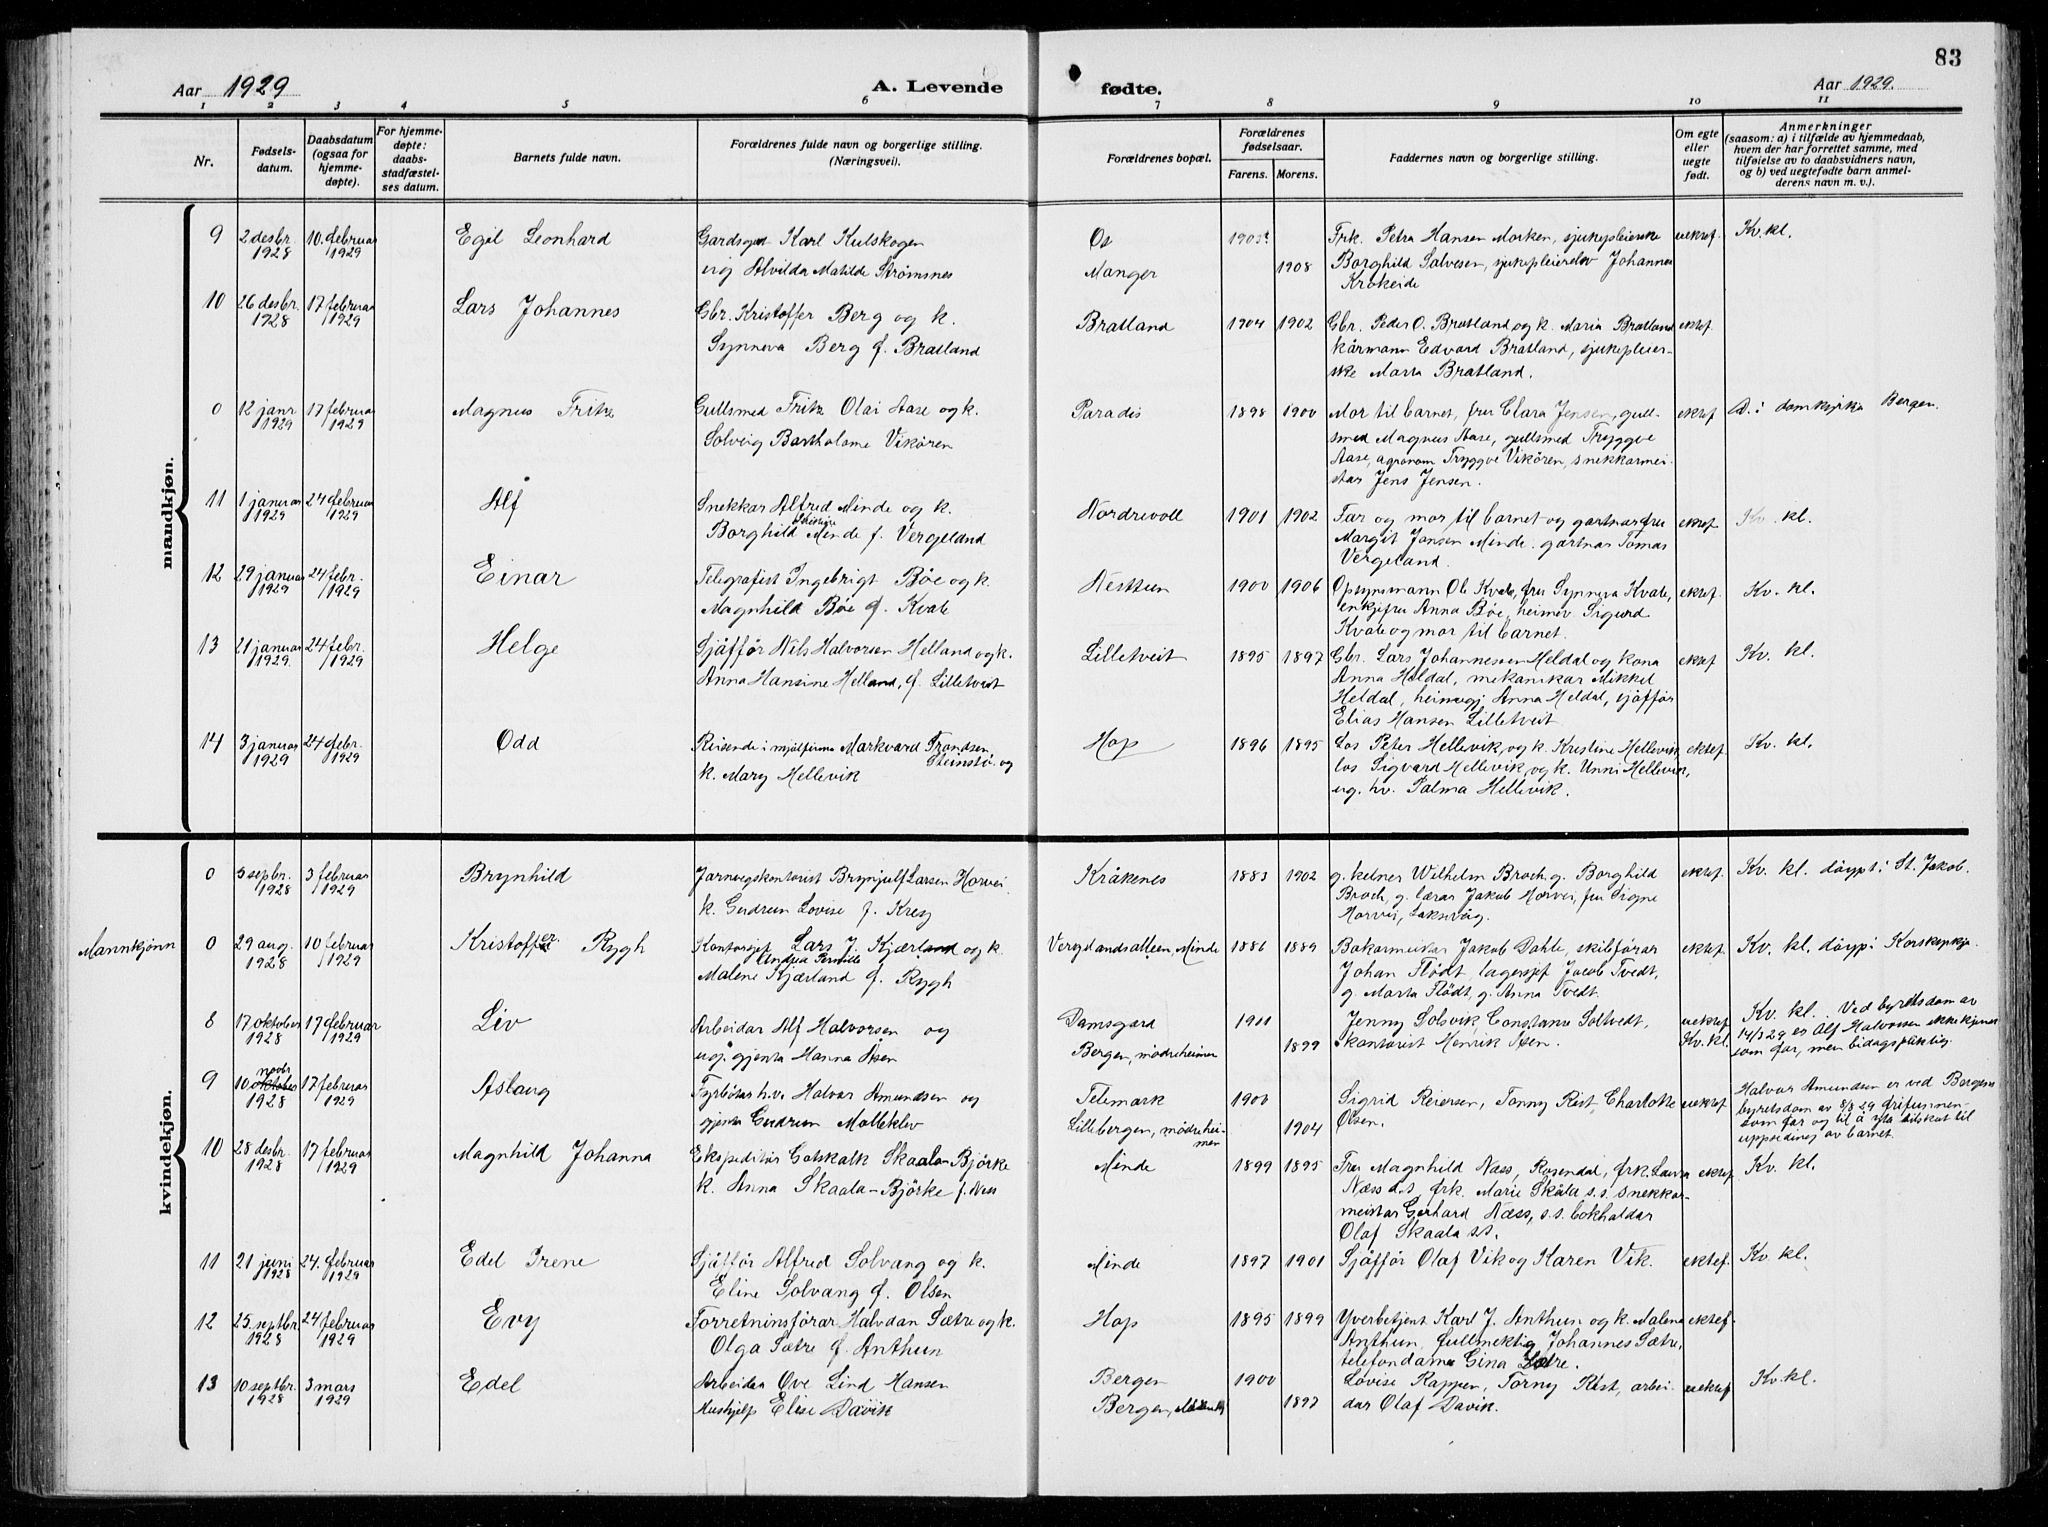 83
Aar 1929 A. Levende fødte. Aar 1929.
1 2 3 4 5 6 7 8 9 10 11
Nr.
Fødsels-
datum.
Daabsdatum
(ogsaa for
hjemme-
døpte).
For hjemme-
døpte:
daabs-
stadfæstel-
ses datum.
Barnets fulde navn.
Forældrenes fulde navn og borgerlige stilling.
(Næringsvei).
Forældrenes bopæl.
Forældrenes
fødselsaar.
Farens. Morens.
Faddernes navn og borgerlige stilling.
Om egte
eller
uegte
født.
Anmerkninger
(saasom: a) i tilfælde av hjemmedaab,
hvem der har forrettet samme, med
tilføielse av to daabsvidners navn,
og b) ved uegtefødte barn anmel-
derens navn m. v.).
mandkjøn.
9 2 desbr. 10. februar Egil Leonhard Gardsgut Karl Kulskogen Os 1905 Frk. Petra Hansen Morken, sjukepleierske uektef. Kv. kl.
1928 1929 ugj Alvilda Matilde Strømsnes Manger 1908 Borghild Salvesen, sjukepleierelev Johannes
Krokeide
10 26 desbr. 17 februar Lars Johannes Gbr. Kristoffer Berg og k. Bratland 1904 1902 Gbr. Peder O. Bratland og k. Maria Bratland ektef.
1928 1929 Synneva Berg f. Bratland kårmann Edvard Bratland, sjukepleier-
ske Marta Bratland.
0 12 janr 17 februar Magnus Fritz Gullsmed Fritz Olai Aase og k. Paradis 1898 1900 Mor til barnet, fru Clara Jensen, gull- ektef D. i domkyrkja Bergen.
1929 1929 Solveig Bartholame Vikören smed Magnus Aase, gullsmed Tryggve
Aase, agronom Tryggve Vikören, snekkarmei-
star Jens Jensen.
11 1 januar 24 februar Alf Snekkar Alfred Minde og k. Nordrevoll 1901 1902 Far og mor til barnet og gartnarfru ektef Kv. kl.
1929 1929 Borghild Minde f. Vergeland Margit Jansen Minde. gartnar Tomas
Vergeland.
12 29 januar 24 febr. Einar Telegrafist Ingebrigt Böe og k. Nesttun 1900 1906 Opsynsmann Ole Kvale, fru Synneva Kvale, ektef. Kv. kl.
1929 1929 Magnhild Böe f. Kvale enkjefru Anna Böe, heimev Sigurd
Kvale og mor til barnet.
13 21 januar 24 febr. Helge Sjåfför Nils Halvorsen Helland og k. Lilletveit 1895 1897 Gbr. Lars Johannessen Heldal og kona ektef Kv. kl.
1929. 1929 Anna Hansine Helland, f. Lilletveit Anna Heldal, mekanikar Mikkel
Heldal, heimegj. Anna Heldal, sjåfför
Elias Hansen Lilletveit
14 3 januar 24 febr. Odd Reisende i mjølfirma Markvard Frandsen Hop 1896 1895 Los Peter Hellevik, og k. Kristine Hellevik ektef. Kv. kl.
1929 1929 Steinstø. og los Sigvard Hellevik, og k. Unni Hellevik,
k. Mary Hellevik ug. hv. Palma Hellevik.
kvindekjøn.
0 5 sepbr. 3 februar Brynhild Jarnvegskontorist Brynjulf Larsen Horvei Kråkenes 1883 1902 g. kelner Wilhelm Broch, g. Borghild ektef. Kv. kl. döypt i St. Jakob.
1928 1929 k. Gudrun Lovise f. Krey Broch, g. lærar Jakob Horvei, fru Signe
Horvei, Laksevåg.
Mannkjønn 0 29 aug. 10 februar Kristoffer Rygh Kontorsjef Lars J. Kjærland og k. Vergelandsalleen, Minde 1886 1889 Bakarmeistar Jakob Dahle, skibsförar ektef. Kv. kl. döyp i Korskyrkja
1928 1929 Andrea Pernille Johan Flödt, lagersjef Jacob Tvedt,
Malene Kjærland f. Rygh g. Marta Flödt, g. Anna Tvedt.
8 17 oktober 17 februar Liv Arbeidar Alf Halvorsen og Damsgård 1901 Jenny Solsvik, Constanse Soltvedt, uektef Kv. kl. Ved byretsdom av
1928 1929 ugj. gjenta Hanna Åsen Bergen, mödreheimen 1899 kontorist Henrik Åsen. Kv. kl. 14/3 29 er Alf Halvorsen ikke kjent
som far, men bidragspliktig.
9 10 oktober novbr 17 februar Aslaug Fyrbötar h.v. Halvar Amundsen og Telemark 1900 Sigrid Reiersen, Tonny Rist, Charlotte uektef Halvar Amundsen er ved Bergens
1928 1929 gjenta Gudrun Molleklev Lillebergen, mödrehei- 1904 Olsen. byretsdom av 8/3 29 frifunnen
men som far og til å yta tilskot til
uppseding av barnet.
10 28 desbr. 17 februar Magnhild Johanna Ekspeditör Gotskalk Skaala-Björke Minde 1899 1895 Fru Magnhild Næss, Rosendal, frk. Laura ektef Kv. kl.
1928 1929 k. Anna Skaala-Björke f. Næss Næss s.s. frk. Marie Skåla s.s. snekkar-
meistar Gerhard Næss, s.s. bokhaldar
Olaf Skaala s.s.
11 21 juni 24. februar Edel Irene Sjåfför Alfred Solvang og k. Minde 1897 1901 Sjåfför Olaf Vik og Karen Vik. ektef. Kv. kl.
1928 1929 Eline Solvang f. Olsen
12 25 septbr. 24 februar Evy Forretninsförar Halvdan Sætre og k. Hop 1895 1899 Yverbetjent Karl J. Anthun og k. Malena ektef.
1928 1929 Olga Sætre f. Anthun Anthun, fullmektig Johannes Sætre,
telefondame Gina Sætre.
13 10 septbr. 3 mars Edel Arbeidar Ove Lind Hansen Bergen 1900 Lovise Rappen, Torny Rist, arbei- uektef Kv. kl.
1928 1929 Hushjelp Elise Davik Bergen, 1897 dar Olaf Davik.